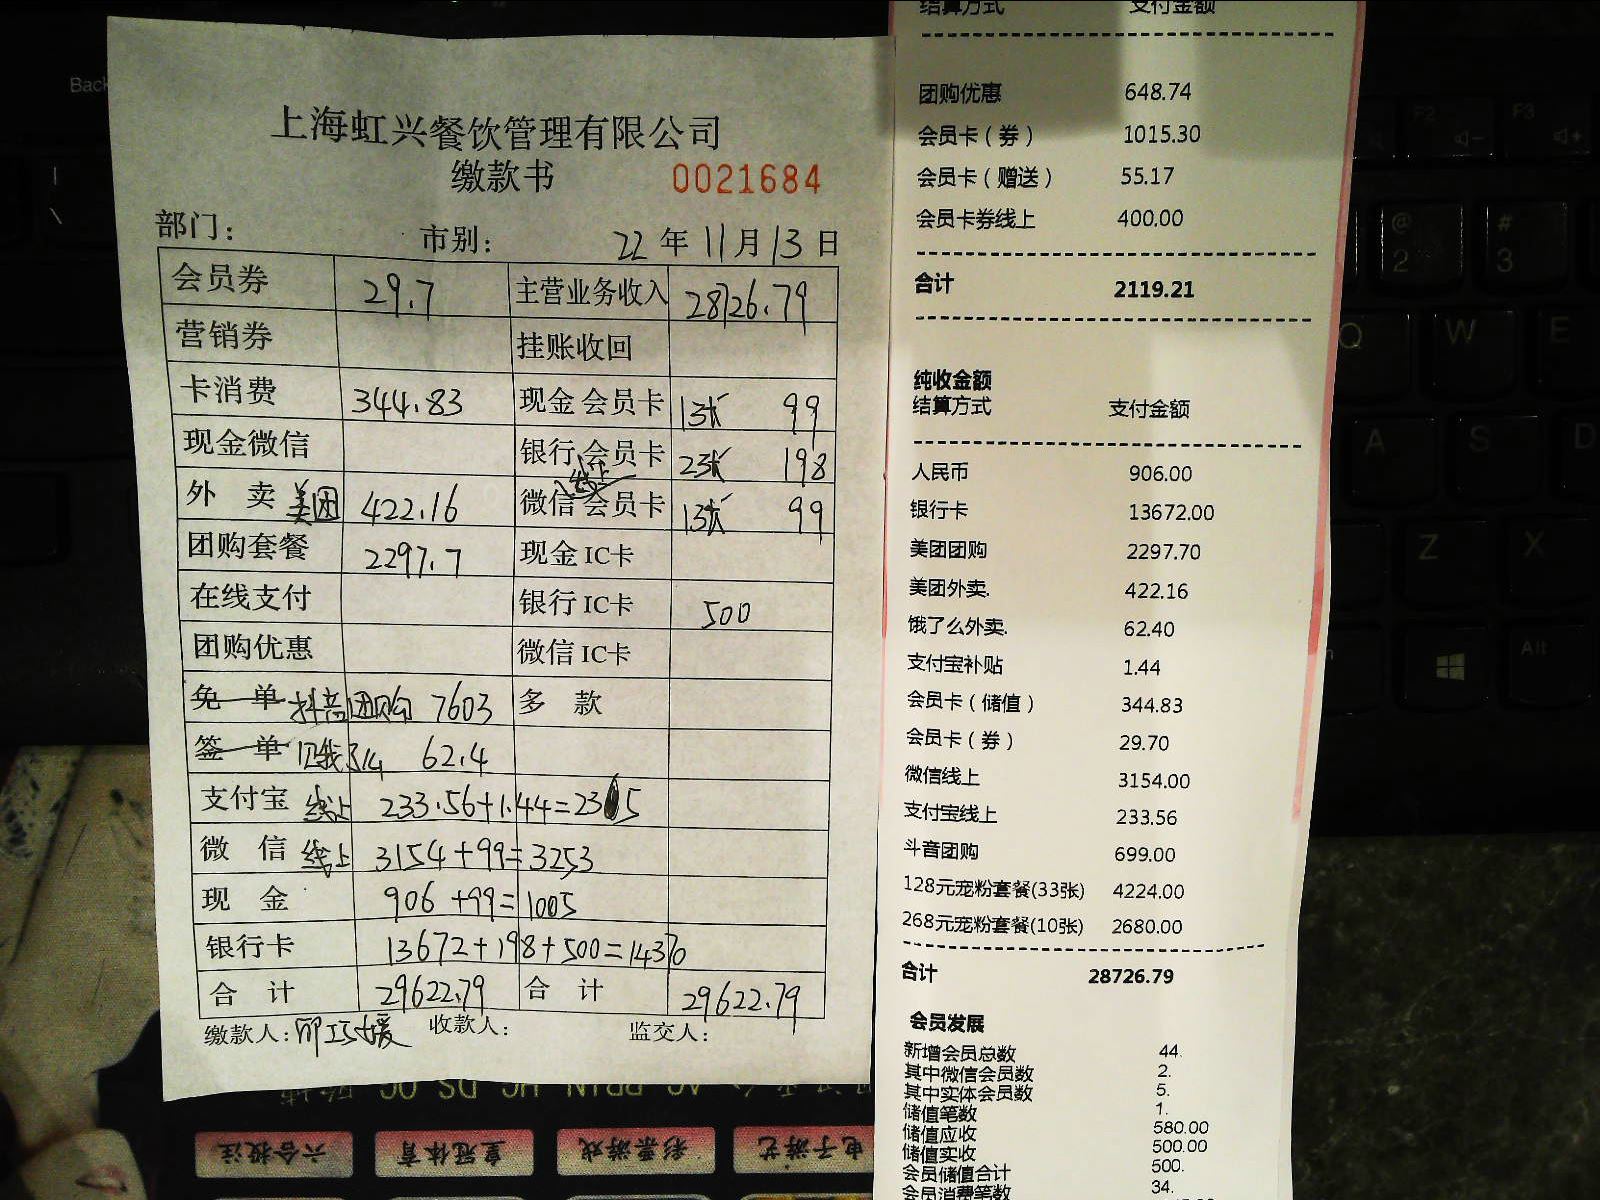 上海虹兴餐饮管理有限公司
缴款书 0021684
部门： 市别： 22 年 11 月 13 日
会员券 29.7 主营业务收入 28726.79
营销券 挂账收回
卡消费 344.83 现金 会员卡 1张 99
现金微信 银行 会员卡 2张 198
外 卖 美团 422.16 微信 线上 会员卡 1张 99
团购套餐 2297.7 现金 IC卡
在线支付 银行 IC卡 500
团购优惠 微信 IC卡
免 单 抖音团购 7603 多 款
签 单 饿了么 62.4
支付宝 线上 233.56+1.44=235
微 信 线上 3154+99=3253
现 金 906+99=1005
银行卡 13672+198+500=14370
合 计 29622.79 合 计 29622.79
缴款人： 收款人： 监交人：
结算方式 支付金额
团购优惠 648.74
会员卡（券） 1015.30
会员卡（赠送） 55.17
会员卡券线上 400.00
合计 2119.21
纯收金额
结算方式 支付金额
人民币 906.00
银行卡 13672.00
美团团购 2297.70
美团外卖. 422.16
饿了么外卖. 62.40
支付宝补贴 1.44
会员卡（储值） 344.83
会员卡（券） 29.70
微信线上 3154.00
支付宝线上 233.56
斗音团购 699.00
128元宠粉套餐(33张) 4224.00
268元宠粉套餐(10张) 2680.00
合计 28726.79
会员发展
新增会员总数 44.
其中微信会员数 2.
其中实体会员数 5.
储值笔数 1.
储值应收 580.00
储值实收 500.00
会员储值合计 500.
会员消费笔数 34.
Back
F2
F3
@
2
#
3
Q
W
E
A
S
D
Z
X
Alt
六合投注
皇冠体育
彩票游戏
电子游艺